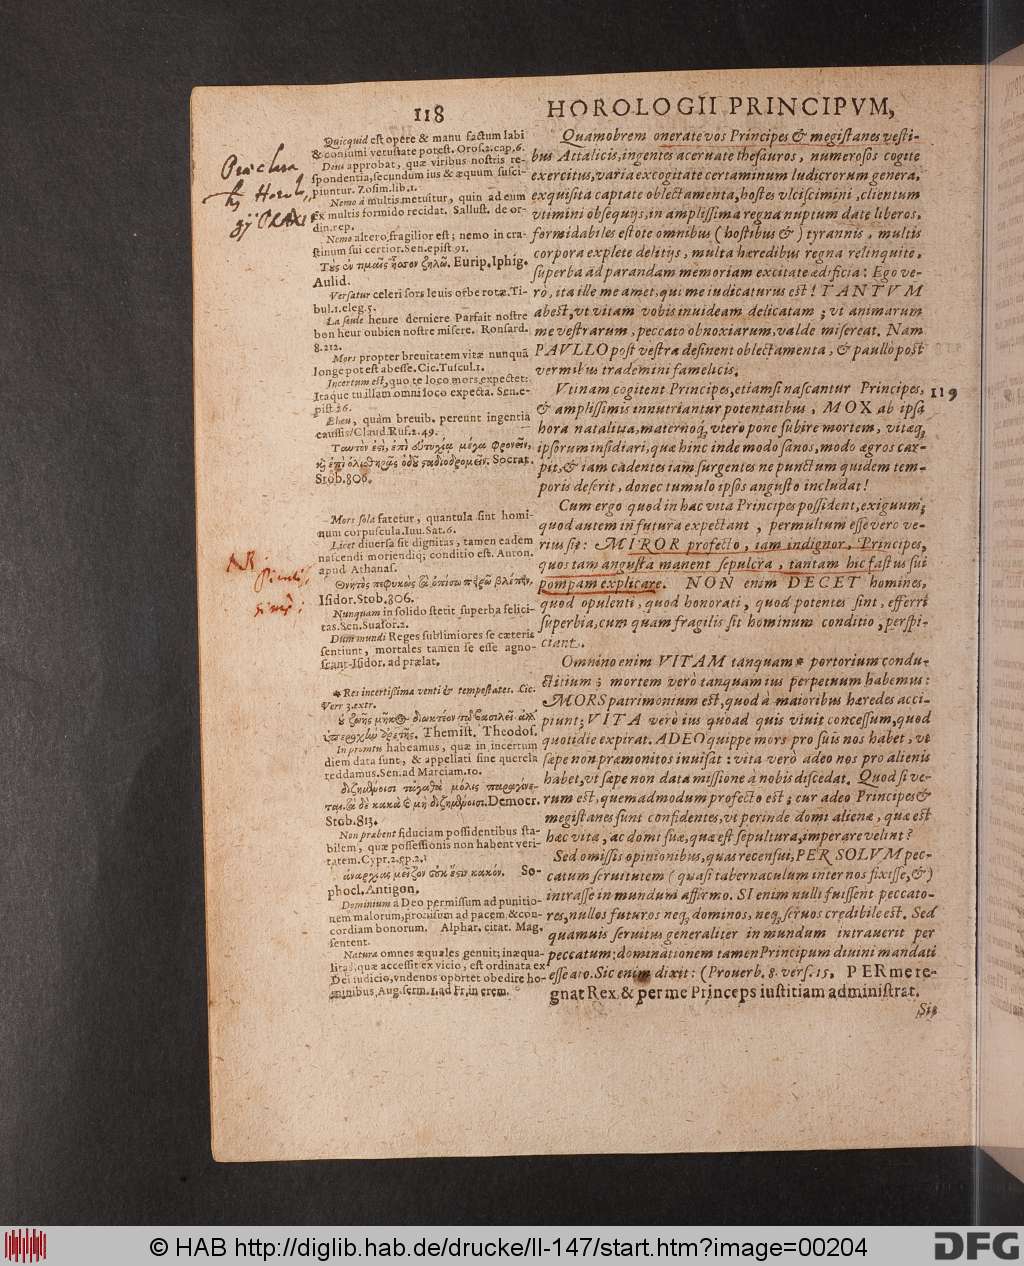 118
HOROLOGII PRINCIPVM,
Quicquid est opere & manu factum labi
& consumi vetustate potest. Oros.2.cap.6.
Deus approbat, quæ viribus nostris re-
spondentia, secundum ius & æquum susci-
piuntur. Zosim.lib.1.
Nemo à multis metuitur, quin ad eum
ex multis formido recidat. Sallust. de or-
din.rep.
Nemo altero fragilior est; nemo in cra-
stinum sui certior. Sen.epist 91.
Eurip. Iphig.
Aulid.
Versatur celeri sors leuis orbe rotæ. Ti-
bul.1.eleg.5.
La seule heure derniere Parfait nostre
bon heur ou bien nostre misere. Ronsard.
8.212.
Mors propter breuitatem vitæ nunquā
longe potest abesse. Cic.Tuscul.1.
Incertum est, quo te loco mors expectet:
Itaque tu illam omni loco expecta. Sen.e-
pist 26.
Eheu, quàm breuib. pereunt ingentia
caussis! Claud. Ruf.1.49.
Socrat.
Stob.806.
Mors sola fatetur, quantula sint homi-
num corpuscula. Iuu.Sat.6.
Licet diuersa sit dignitas, tamen eadem
nascendi moriendiq; conditio est. Anton.
apud Athanas.
Isidor.Stob.806.
Nunquam in solido stetit superba felici-
tas. Sen.Suasor.2.
Dum mundi Reges sublimiores se cæteris
sentiunt, mortales tamen se esse agno-
scant. Isidor. ad prælat.
* Res incertissima venti & tempestates. Cic.
Verr 3.extr.
Themist. Theodos.
In promtu habeamus, quæ in incertum
diem data sunt, & appellati sine querela
reddamus. Sen.ad Marciam.10.
Democr.
Stob.813.
Non præbent fiduciam possidentibus sta-
bilem, quæ possessionis non habent veri-
tatem. Cypr.2.ep.2.
ἀναρχίας μεῖζον οὐκ ἔστιν κακόν. So-
phocl. Antigon.
Dominium à Deo permissum ad punitio-
nem malorum, promissum ad pacem & con-
cordiam bonorum. Alphar. citat. Mag.
sentent.
Natura omnes æquales genuit; inæqua-
litas, quæ accessit ex vicio, est ordinata ex
Dei iudicio, vnde nos oportet obedire ho-
minibus. Aug. serm.
Quamobrem onerate vos Principes & megistanes vesti-
bus Attalicis, ingentes aceruate thesauros, numerosos cogite
exercitus, varia excogitate certaminum ludicrorum genera,
exquisita captate oblectamenta, hostes vlciscimini, clientum
vtimini obsequijs, in amplissima regna nuptum date liberos,
formidabiles estote omnibus (hostibus &) tyrannis, multis
corpora explete delitijs, multa hæredibus regna relinquite,
superba ad parandam memoriam excitate ædificia: Ego ve-
rò, ita ille me amet, qui me iudicaturus est! TANTVM
abest, vt vitam vobis inuideam delicatam; vt animarum
me vestrarum, peccato obnoxiarum, valde misereat. Nam
PAVLLO post vestra desinent oblectamenta, & paullò post
vermibus trademini famelicis.
Vtinam cogitent Principes, etiamsi nascantur Principes,
& amplissimis innutriantur potentatibus, MOX ab ipsa
119
hora natalitia, maternoq; vtero pone subire mortem, vitæq;
ipsorum insidiari, quæ hinc inde modo sanos, modo ægros car-
pit, & iam cadentes iam surgentes ne punctum quidem tem-
poris deserit, donec tumulo ipsos angusto includat!
Cum ergo quod in hac vita Principes possident, exiguum;
quod autem in futura expectant, permultum esse vero ve-
rius sit: MIROR profecto, iam indignor, Principes,
quos tam angusta manent sepulcra, tantam hic fastus sui
pompam explicare. NON enim DECET homines,
quod opulenti, quod honorati, quod potentes sint, efferri
superbia, cum quam fragilis sit hominum conditio, perspi-
ciant.
Omnino enim VITAM tanquam * portorium condu-
ctitium; mortem verò tanquam ius perpetuum habemus:
MORS patrimonium est, quod à maioribus hæredes acci-
piunt; VITA verò ius quoad quis viuit concessum, quod
quotidie expirat. ADEO quippe mors pro suis nos habet, vt
sæpe non præmonitos inuisat: vita verò adeo nos pro alienis
habet, vt sæpe non data missione à nobis discedat. Quod si ve-
rum est, quemadmodum profecto est; cur adeo Principes &
megistanes sunt confidentes, vt perinde domi alienæ, quæ est
hæc vita, ac domi suæ, quæ est sepultura, imperare velint?
Sed omissis opinionibus, quas recensui, PER SOLVM pec-
catum seruitutem (quasi tabernaculum inter nos fixisse, &)
intrasse in mundum affirmo. SI enim nulli fuissent peccato-
res, nullos futuros neq; dominos, neq; seruos credibile est. Sed
quamuis seruitus generaliter in mundum intrauerit per
peccatum; dominationem tamen Principum diuini mandati
esse aio. Sic enim dixit: (Prouerb. 8. vers. 15. PER me re-
gnat Rex & per me Princeps iustitiam administrat.
Sis
© HAB http://diglib.hab.de/drucke/ll-147/start.htm?image=00204
DFG